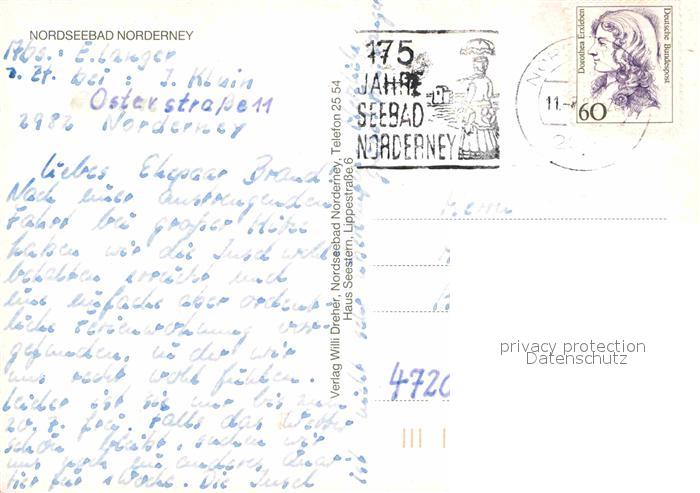 NORDSEEBAD NORDERNEY
Abs.: E. Langer
z. Zt. bei: J. Klein
Osterstraße 11
2982 Norderney
Liebes Ehepaar Brand
Nach einer anstrengenden
Fahrt bei großer Hitze
haben wir die Insel wohl
behalten erreicht und
eine einfache aber ordent
liche Ferienwohnung vor
gefunden, in der wir
uns recht wohl fühlen.
Leider ist sie nur bis zum
20. 7. frei. Falls das Wetter
schön bleibt, suchen wir
uns noch ein anderes Quar
tier für 1 Woche. Die Insel
Verlag Willi Dreher, Nordseebad Norderney, Telefon 25 54
Haus Seestern, Lippestraße 6
175
JAHRE
SEEBAD
NORDERNEY
11.
Dorothea Erxleben
Deutsche Bundespost
60
Herrn
4720
privacy protection
Datenschutz